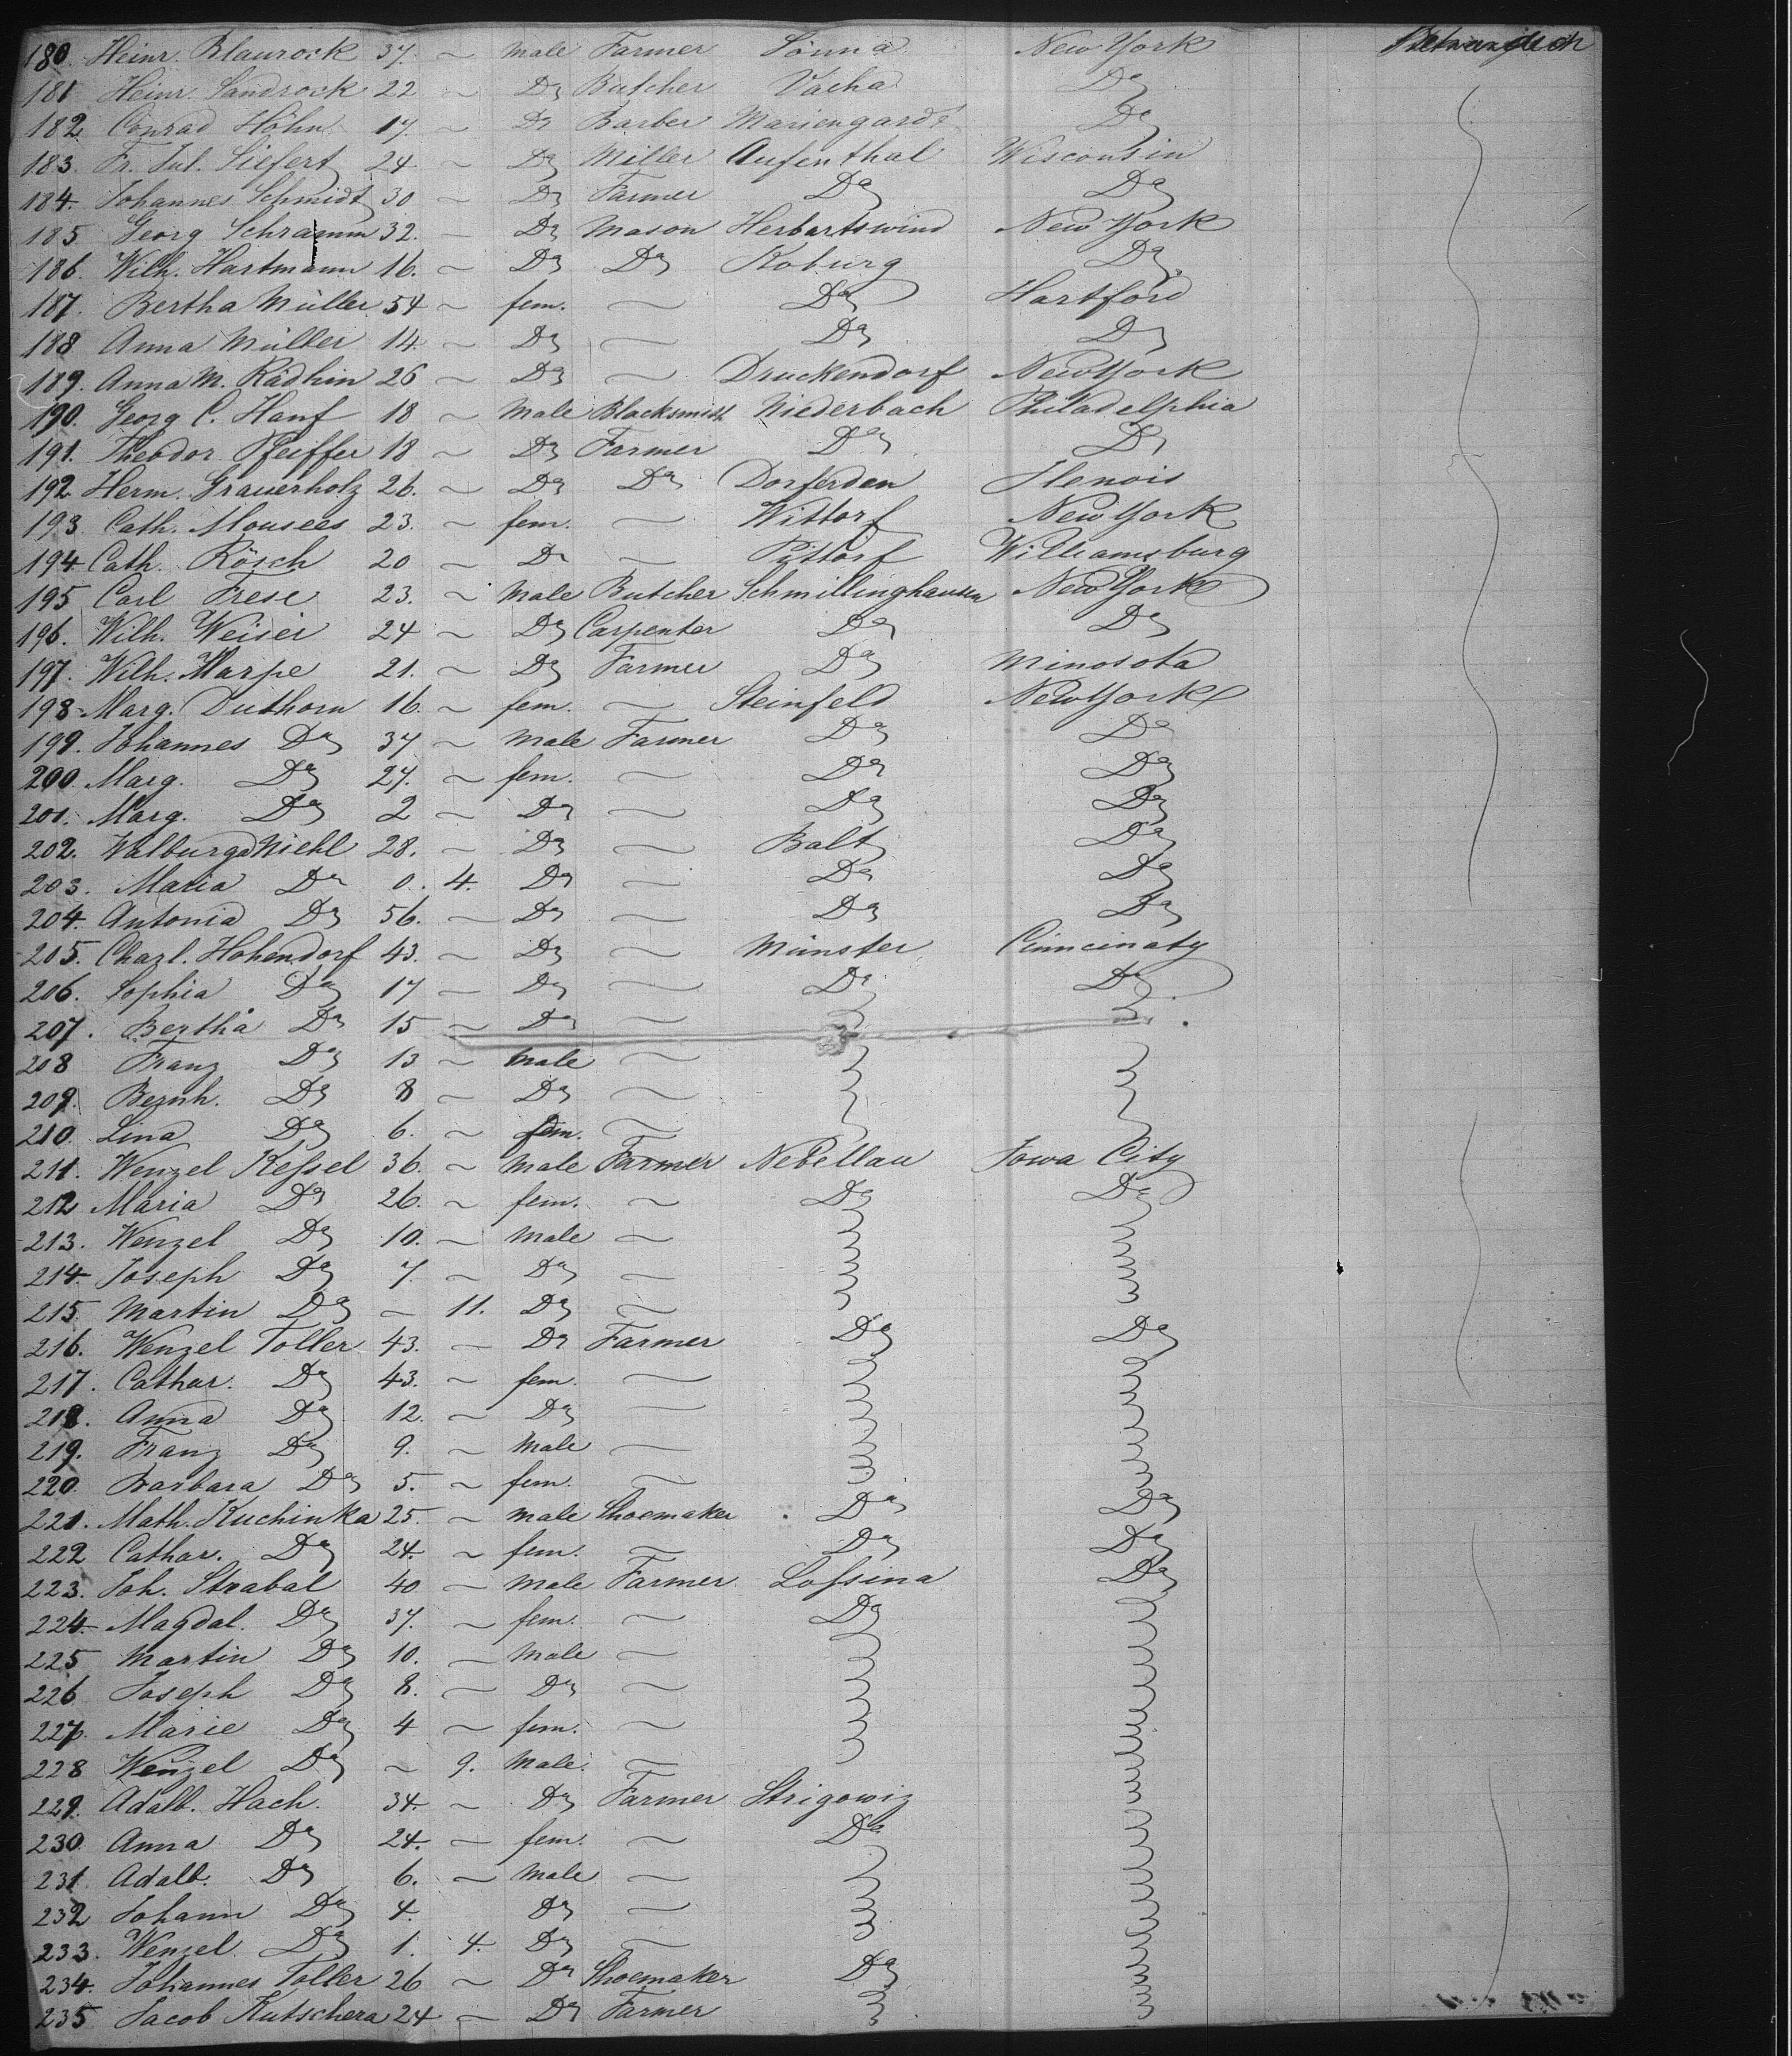 180. Heinr. Blaurock 37. ~ male Farmer Sönna New York Betwangdeck
181 Heinr. Sandrock 22 ~ Do Butcher Vacha Do
182 Conrad Höhn 17. ~ Do Barber Mariengardt Do
183. Fr. Jul. Siefert 24 ~ Do Miller Aufenthal Wisconsin
184. Johannes Schmidt 30 ~ Do Farmer Do Do
185 Georg Schramm 32. ~ Do Mason Herbartswind New York
186. Wilh. Hartmann 16. ~ Do Do Koburg Do
187. Bertha Müller 54 ~ fem. ~ Do Hartford
188 Anna Müller 14. ~ Do ~ Do Do
189. Anna M. Rädhin 26 ~ Do ~ Druckendorf New York
190. Georg C. Hanf 18 ~ male Blacksmith Niederbach Philadelphia
191. Theodor Pfeiffer 18 ~ Do Farmer Do Do
192 Herm. Grauerholz 26. ~ Do Do Dorferden Ilenois
193 Cath. Mousees 23. ~ fem. ~ Wittorf New York
194 Cath. Rösch 20 ~ Do ~ Pittorf Williamsburg
195 Carl Frese 23. ~ male Butcher Schmillinghausen New York
196. Wilh. Weiser 24 ~ Do Carpenter Do Do
197. Wilh. Warpe 21. ~ Do Farmer Do Minosota
198 Marg. Duthorn 16. ~ fem. ~ Steinfeld New York
199. Johannes Do 37 ~ male Farmer Do Do
200. Marg. Do 27. ~ fem. ~ Do Do
201. Marg. Do 2 ~ Do ~ Do Do
202. Walburga Niehl 28. ~ Do ~ Balt Do
203. Maria Do 0. 4. Do ~ Do Do
204. Antonia Do 56. ~ Do ~ Do Do
205. Charl. Hohendorf 43. ~ Do ~ Münster Cinncinaty
206. Sophia Do 17 ~ Do ~ Do Do
207. Bertha Do 15 ~ Do ~
208 Franz Do 13 ~ male ~
209. Bernh. Do 8 ~ Do ~
210. Lina Do 6. ~ fem. ~
211. Wenzel Keſsel 36. ~ male Farmer Nebellau Iowa City
212 Maria Do 26. ~ fem. ~ Do Do
213. Wenzel Do 10. ~ male ~
214. Joseph Do 7. ~ Do ~
215. Martin Do ~ 11. Do ~
216. Wenzel Toller 43. ~ Do Farmer Do Do
217. Cathar. Do 43. ~ fem. ~
218. Anna Do 12. ~ Do ~
219. Franz Do 9. ~ male ~
220. Barbara Do 5. ~ fem. ~
221. Math. Kuchinka 25. ~ male Shoemaker Do Do
222 Cathar. Do 24. ~ fem. ~ Do Do
223. Joh. Strabal 40 ~ male Farmer Loſsina Do
224. Magdal. Do 37. ~ fem. ~ Do
225 Martin Do 10. ~ male ~
226 Joseph Do 8. ~ Do ~
227. Marie Do 4 ~ fem. ~
228 Wenzel Do ~ 9. male. ~
229. Adalb. Hach. 34. ~ Do Farmer Strigowiz
230. Anna Do 24. ~ fem. ~ Do
231. Adalb. Do 6. ~ male ~
232 Johann Do 4. Do ~
233. Wenzel Do 1. 4. Do ~
234. Johannes Toller 26 ~ Do Shoemaker Do
235 Jacob Kutschera 24 ~ Do Farmer